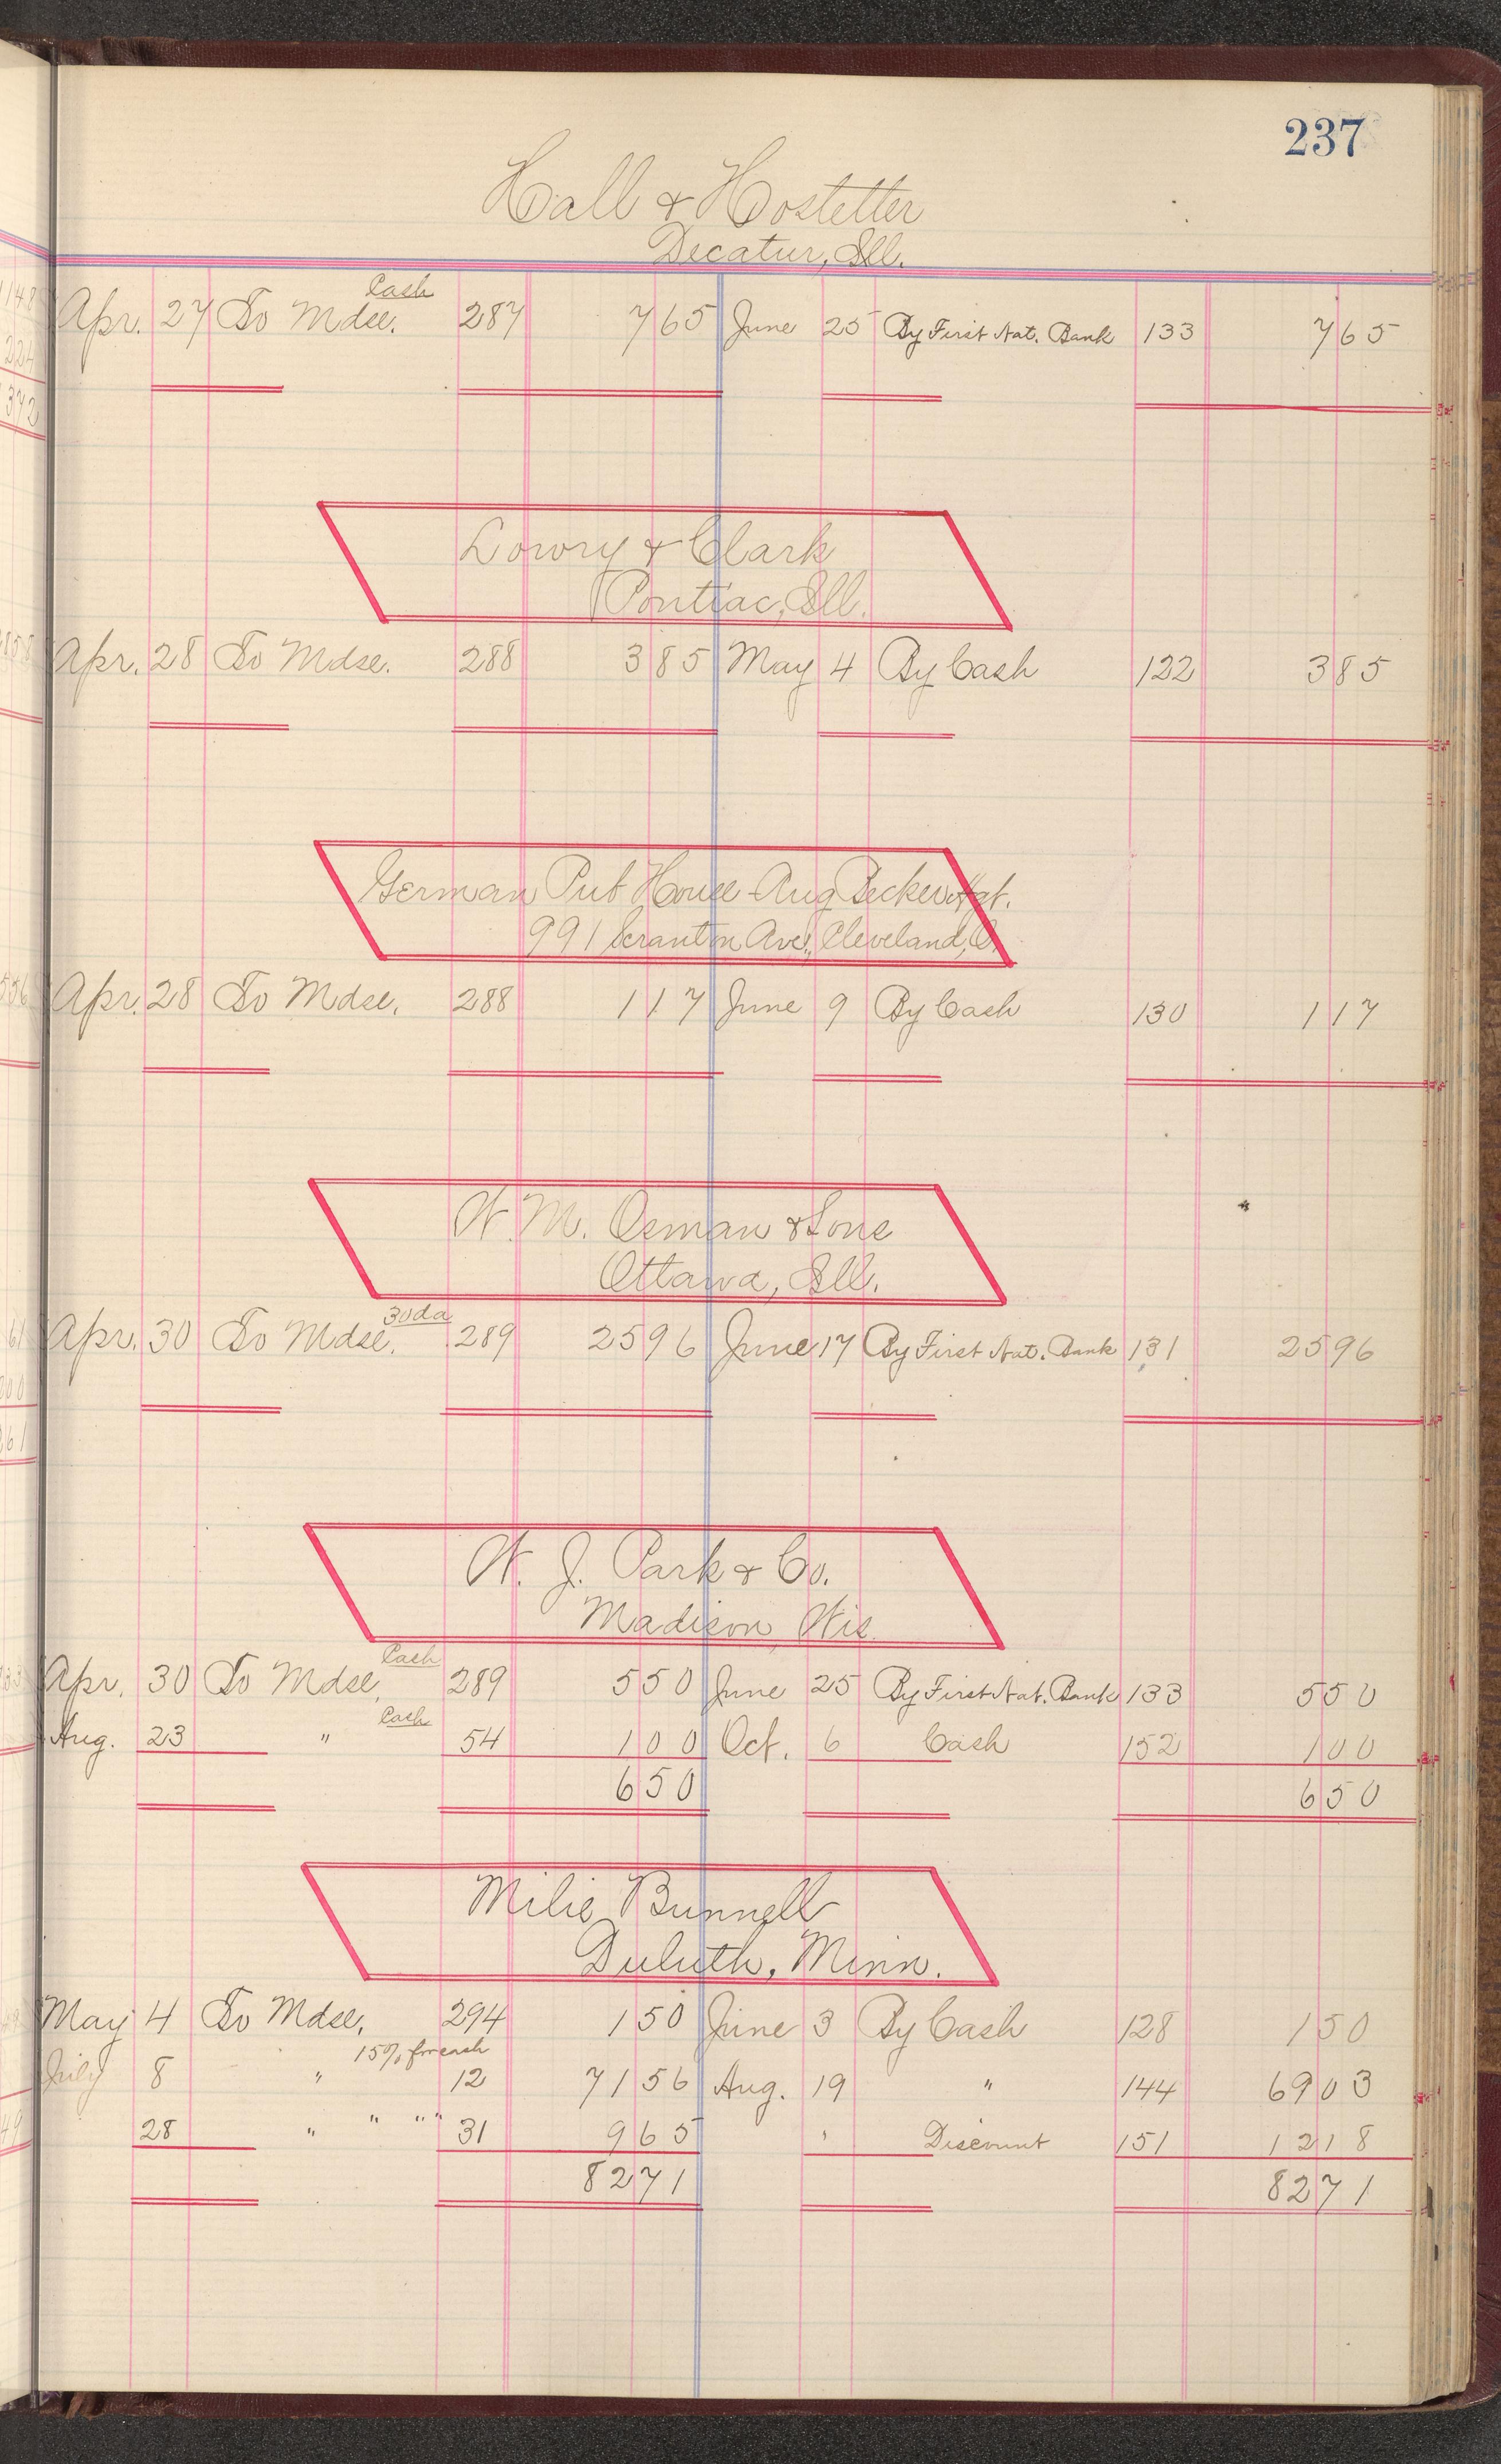 237
Hall & Hostetter
Decatur, Ill.
Cash
Apr. 27 To Mdse. 287 765 June 25 By First Nat. Bank 133 765
Lowry & Clark
Pontiac, Ill.
Apr. 28 To Mdse. 288 385 May 4 By Cash 122 385
German Pub House - Aug Becker Agt.
991 Scranton Ave., Cleveland, O.
Apr. 28 To Mdse. 288 117 June 9 By Cash 130 117
W. M. Osman & Sons
Ottawa, Ill.
30 da
Apr. 30 To Mdse. 289 2596 June 17 By First Nat. Bank 131 2596
W. J. Park & Co.
Madison, Wis.
Cash
Apr. 30 To Mdse. 289 550 June 25 By First Nat. Bank 133 550
Cash
Aug. 23 " 54 100 Oct. 6 Cash 152 100
650 650
Milie Bunnell
Duluth, Minn.
May 4 To Mdse. 294 150 June 3 By Cash 128 150
15% for cash
July 8 " 12 7156 Aug. 19 " 144 6903
28 " " " " 31 965 " Discount 151 1218
8271 8271